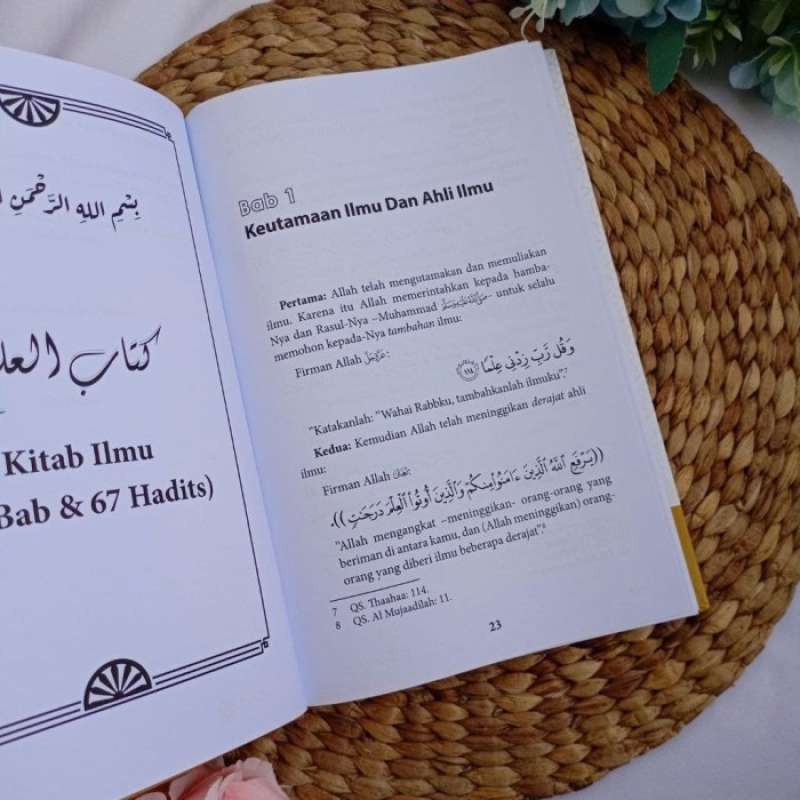 بِسْمِ اللهِ الرَّحْمَنِ
كتاب العلم
Kitab Ilmu
Bab & 67 Hadits)
Bab 1
Keutamaan Ilmu Dan Ahli Ilmu
Pertama: Allah telah mengutamakan dan memuliakan
ilmu. Karena itu Allah memerintahkan kepada hamba-
Nya dan Rasul-Nya –Muhammad ﷺ– untuk selalu
memohon kepada-Nya tambahan ilmu:
Firman Allah عَزَّوَجَلَّ:
وَقُل رَّبِّ زِدْنِى عِلْمًا ١١٤
"Katakanlah: "Wahai Rabbku, tambahkanlah ilmuku".7
Kedua: Kemudian Allah telah meninggikan derajat ahli
ilmu:
Firman Allah تَعَالَى:
((يَرْفَعِ ٱللَّهُ ٱلَّذِينَ ءَامَنُوا۟ مِنكُمْ وَٱلَّذِينَ أُوتُوا۟ ٱلْعِلْمَ دَرَجَٰتٍ)).
"Allah mengangkat –meninggikan- orang-orang yang
beriman di antara kamu, dan (Allah meninggikan) orang-
orang yang diberi ilmu beberapa derajat".8
7 QS. Thaahaa: 114.
8 QS. Al Mujaadilah: 11.
23